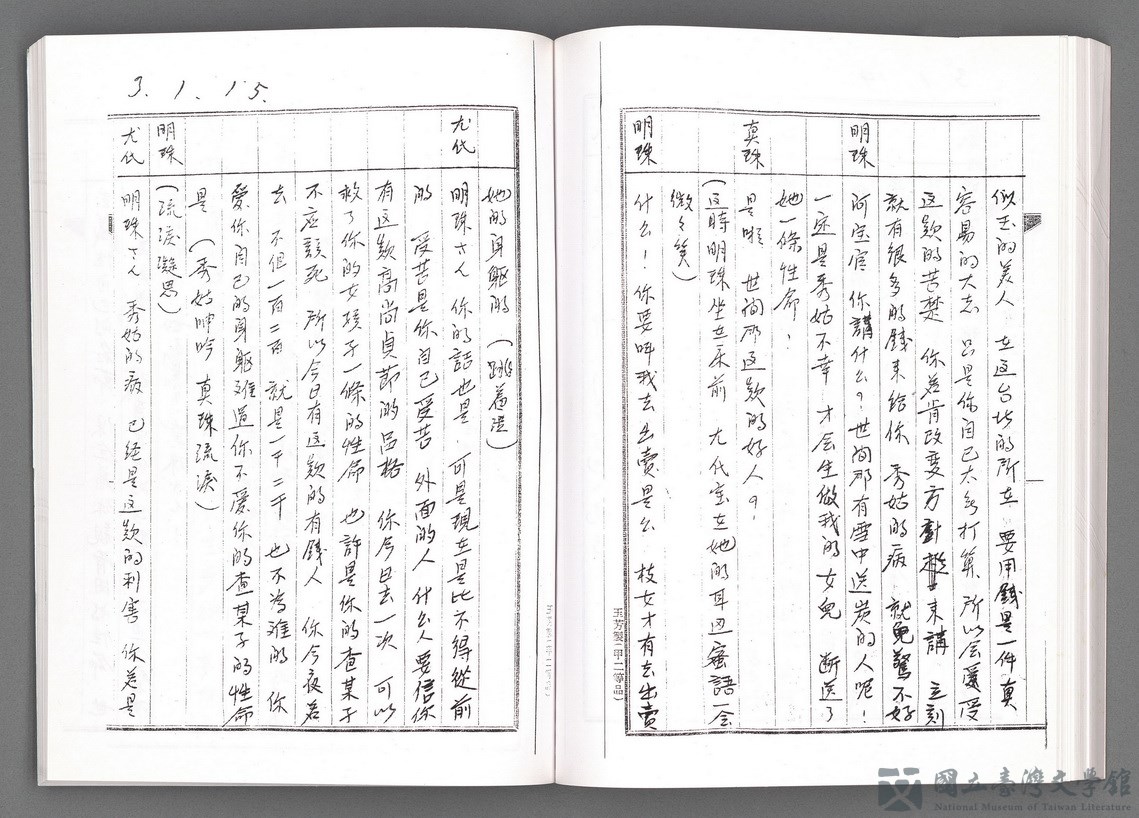 似玉的美人 在這台北的所在 要用錢是一件真
容易的大志 只是你自己太無打算 所以会愛受
這款的苦楚 你若肯改變方針 來講 立刻
就有很多的錢來給你 秀姑的病 就免驚不好
明珠 阿宝官 你講什么?世間那有雪中送炭的人呢!
一定是秀姑不幸 才会生做我的女兒 断送了
她一條性命!
真珠 是啦 世間所這款的好人?
(這時明珠坐在床前 尤代宝在她的耳边蜜語一会
微々笑)
明珠 什么!你要叫我去出賣是么 枝女才有去出賣
3.1.15.
她的身軀的 (跳羞澀)
尤代 明珠さん 你的話也是.可是現在是比不得從前
的 受苦是你自己受苦 外面的人 什么人要信你
有這款高尚貞節的品格 你今日去一次 可以
救了你的女孩子一條的性命 也許是你的查某子
不應該死 所以今日有這款的有錢人 你今夜若
去 不但一百二百 就是一千二千 也不為難的 你
愛你自己的身軀难道你不愛你的查某子的性命
是 (秀姑呻吟 真珠流淚)
明珠 (流淚凝思)
尤代 明珠さん 秀姑的病 已經是這款的利害 你若是
玉芳製(甲二等品)
國立臺灣文學館
National Museum of Taiwan Literature